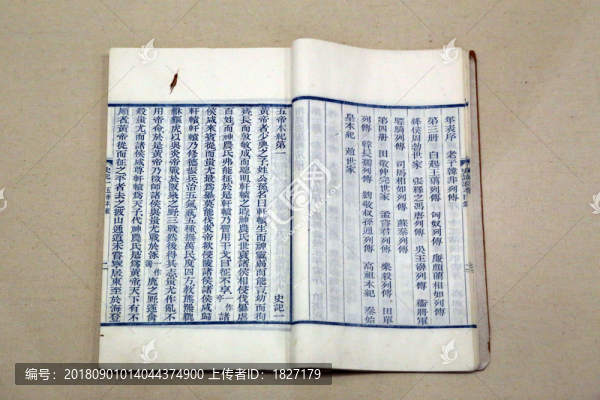 年表序　老子韓非列傳
第三册　白起王翦列傳　匈奴列傳　廉頗藺相如列傳
絳侯周勃世家　張釋之馮唐列傳　吳王濞列傳　衞將軍
驃騎列傳　司馬相如列傳　蘇秦列傳
第四册　田敬仲完世家　孟嘗君列傳　樂毅列傳　田單
列傳　韓長孺列傳　劉敬叔孫通列傳　高祖本紀　秦始
皇本紀　趙世家
五帝本紀第一　史記一
黃帝者少典之子姓公孫名曰軒轅生而神靈弱而能言幼而徇
齊長而敦敏成而聰明軒轅之時神農氏世衰諸侯相侵伐暴虐
百姓而神農氏弗能征於是軒轅乃習用干戈以征不享一作亭諸
侯咸來賓從而蚩尤最爲暴莫能伐炎帝欲侵陵諸侯諸侯咸歸
軒轅軒轅乃修德振兵治五氣蓺五種撫萬民度四方教熊羆貔
貅貙虎以與炎帝戰於阪泉之野三戰然後得其志蚩尤作亂不
用帝命於是黃帝乃徵師諸侯與蚩尤戰於涿一作濁鹿之野遂禽
殺蚩尤而諸侯咸尊軒轅爲天子代神農氏是爲黃帝天下有不
順者黃帝從而征之平者去之披山通道未嘗寧居東至於海登
史記一　五帝本紀
编号：20180901014044374900 上传者ID：1827179